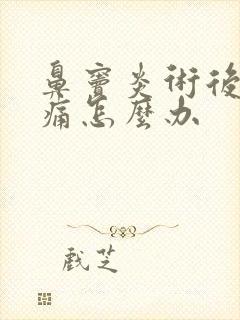 鼻竇炎術後
痛怎麼办
戲芝